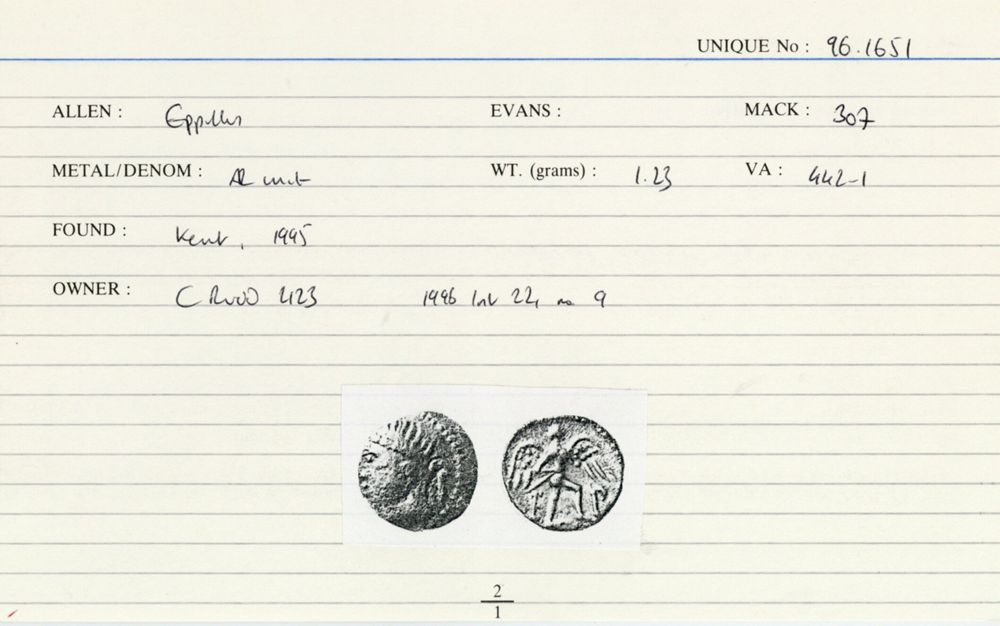 UNIQUE No : 96.1651
ALLEN : Eppillus EVANS : MACK : 307
METAL/DENOM : AR unit WT. (grams) : 1.23 VA : 442-1
FOUND : Kent, 1995
OWNER : C Rudd 1996 22, no 9
2
1